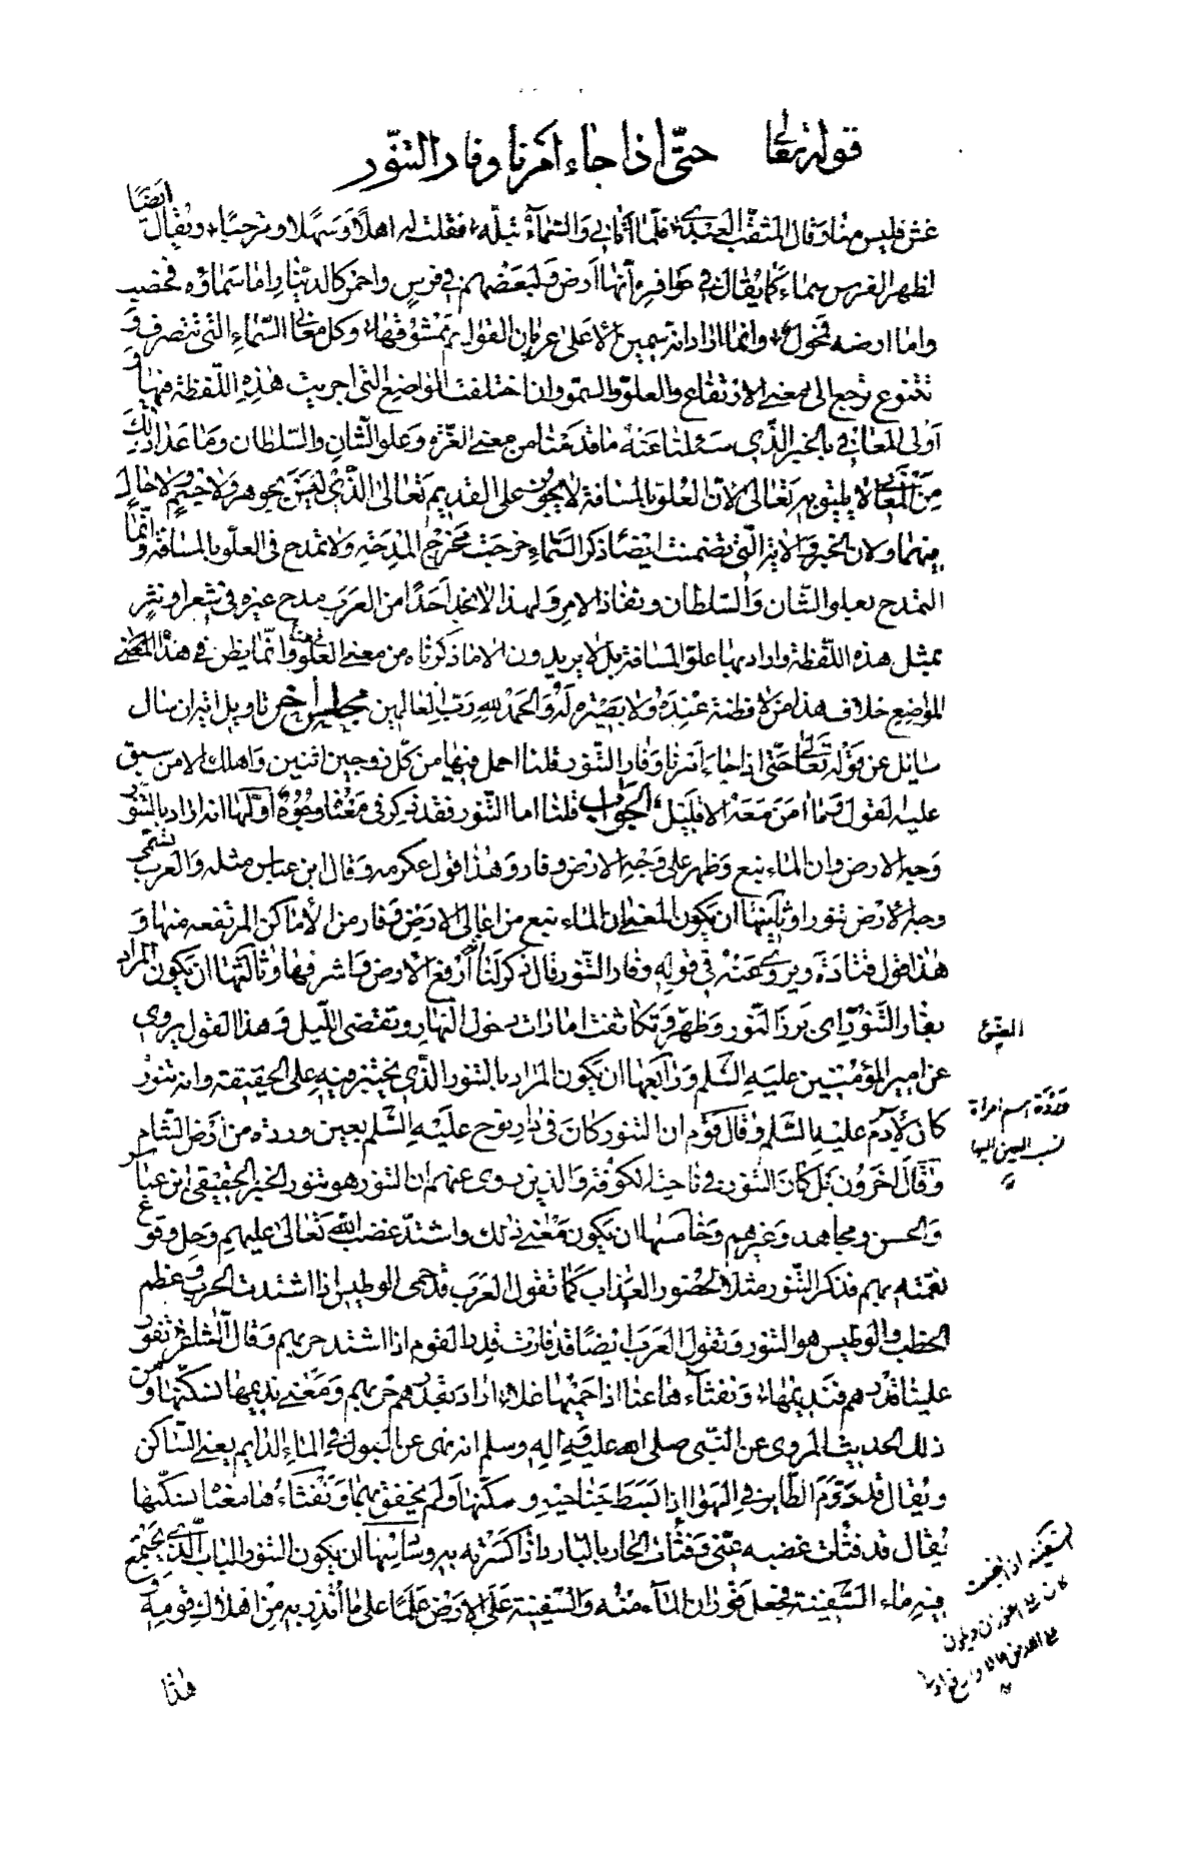 قوله تعالى حتّى اذا جاء امرنا وفار التنّور
غش فليس منا وقال المثقب العبدى فلمّا اتانى والسّمآء تبلّه فقلت له اهلاً وسهلاً ومرحبًا ويقال ايضًا
لظهر الفرس سماء كما يقال فى حوافره أنها ارض ولبعضهم فى فرسٍ واحمر كالدّيباج اما سماؤه فخصيب
واما ارضه فمحول وانما اراد انه سمين الاعلى عريان القوايم ممشوقها وكل معانى السّماءِ التى تتصرف و
تتنوع ترجع الى معنى الارتفاع والعلوّ والسموّ وان اختلفت المواضع التى اجريت هذه اللّفظة فيها و
أولى المعانى بالخبر الّذى سئلنا عنه ما قدمنا من معنى العزّة وعلو الشّانِ والسّلطان وما عدا ذلك
من المعانى لا يليق به تعالى لانّ العلو بالمسافة لا يجوز على القديم تعالى الّذى ليس بجوهر ولا جسمٍ ولا حالٍ
فيهما ولان الخبر والاية الّتى تضمنت ايضًا ذكر السّماءِ خرجت مخرج المدحة ولا تمدح فى العلو بالمسافة وانّما
التمدح بعلو الشّان والسّلطان ونفاذ الامر ولهذا لا نجد أحدًا من العرب مدح غيره فى شعر او نثرٍ
بمثل هذه اللّفظة واراد بها علوّ المسافة بل لا يريدون الا ما ذكرناه من معنى العلوّ وانّما يظن فى هذا المعنى
الموضع خلاف هذا من لا فطنة عنده ولا بصيرة له والحمد للهِ ربّ العالمين مجلس اخر تاويل اية ان سال
سايل عن قوله تعالى حتّى اذا جاء امرنا وفار التنّور قلنا احمل فيها من كلّ زوجين اثنين واهلك الا من سبق
عليه القول وما امن معه الا قليل الجواب قلنا اما التنّور فقد ذكر فى معناه وجوهٌ اوّلها انه اراد بالتنّور
وجه الارض وان الماء نبع وظهر على وجه الارض وفار وهذا قول عكرمه وقال ابن عباس مثله والعرب تسمّى
وجه الارض تنور او ثانيها ان يكون المعنى ان الماء نبع من اعالى الارض وفار من الأماكن المرتفعه منها و
هذا قول قتادة ويروى عنه فى قوله وفار التنّور قال ذكر لنا أنه أرفع الارض واشرفها وثالثها ان يكون المراد
بفار التنّور اى برز النّور وظهر وتكاثفت امارات دخول النّهار وتقضى اللّيل وهذا القول يروى
عن امير المؤمنين عليه السّلم ورابعها ان يكون المراد بالتنور الذّى يختبز فيه على الحقيقة وانه تنّور
كان لآدم عليه السّلم وقال قوم ان التنور كان فى دار نوح عليه السّلم بعين وردة من أرض الشّام
وقال اخرون بل كان التنّور فى ناحية الكوفة والذين روى عنهم ان التنّور هو تنور الخبز الحقيقى ابن عبّاس
والحسن ومجاهد وغيرهم وخامسها ان يكون معنى ذلك واشتدّ غضب الله تعالى عليهم وحل وقوع
نقمته بهم فذكر التّنور مثلا لحضور العذاب كما تقول العرب قد حمى الوطيس اذا اشتدت الحرب وعظم
الخطب والوطيس هو التنور وتقول العرب ايضًا قد فارت قدر القوم اذا اشتد حربهم وقال الشاعر تفور
علينا قدرهم فنديمها ونفثأها عنا اذا حميها غلا اراد بقدرهم حربهم ومعنى نديمها نسكّنها ومن
ذلك الحديث المروى عن النّبى صلى الله عليه واله وسلم انه نهى عن البول فى الماء الدّايم يعنى السّاكن
ويقال قد دوّم الطّاير فى الهوا اذا بسط جناحيه وسكّنها ولم يخفق بهما ونفثأها معناه نسكّنها
يقال قد فثأت غضبه عنّى وفثأت الحار بالبارد اذا كسرته به وسادسها ان يكون التنّور الباب الّذى يجتمع
فيه ماء السّفينة فجعل فوران المآء منه والسّفينة على الارض علمًا على ما أنذر به من اهلاك قومه و
هذا
وردة اسم امراة
نسب العين اليها